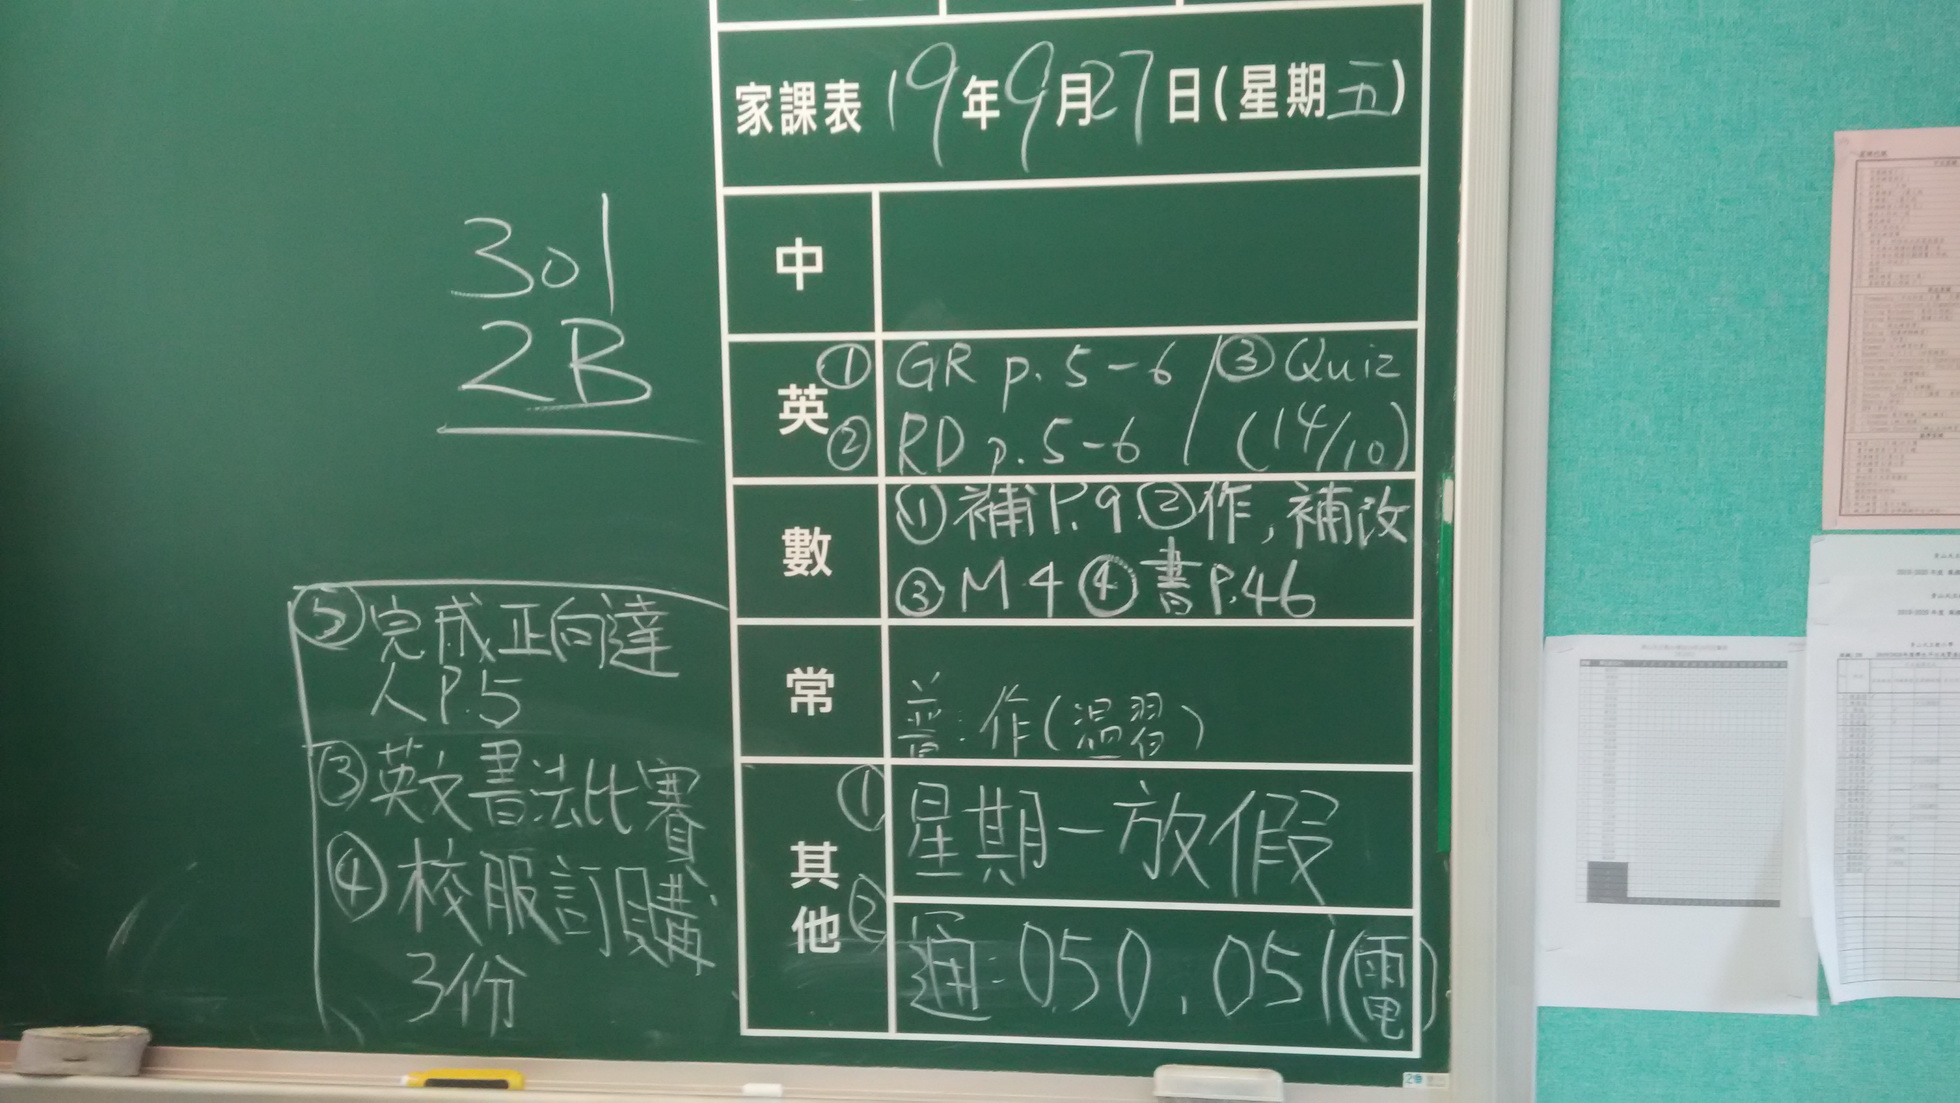 家課表 19年9月27日(星期五)
301
2B
中
英
① GR p.5-6 / ③ Quiz
② RD p.5-6 / (14/10)
數
① 補P.9 ② 作,補改
③ M4 ④ 書P.46
常
普:作(溫習)
其他
① 星期一放假
② 通:050、051(電)
⑤ 完成正向達
人P.5
③ 英文書法比賽
④ 校服訂購
3份